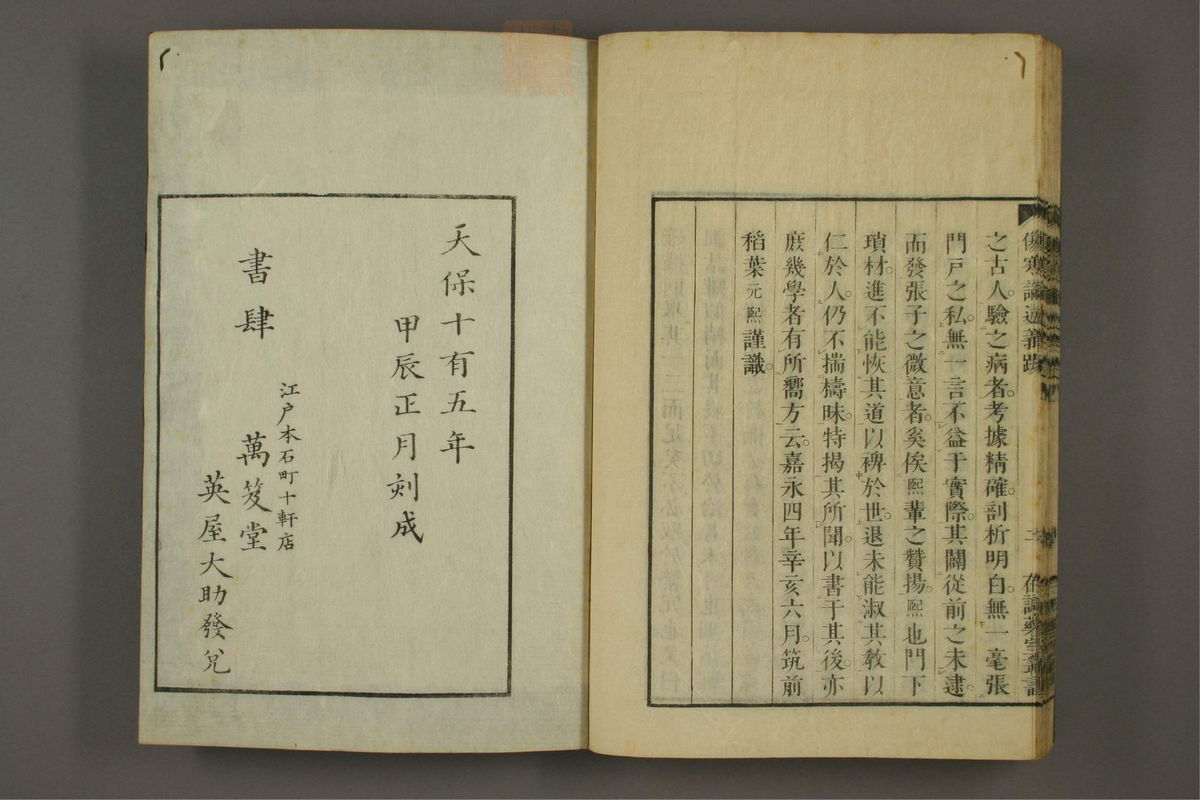 之古人驗之病者考據精確剖析明白無一毫張
門戸之私無一言不益于實際其闢從前之未逮
而發張子之微意者奚俟熙輩之贊揚熙也門下
瑣材進不能恢其道以裨於世退未能淑其教以
仁於人仍不揣檮昧特揭其所聞以書于其後亦
庶幾學者有所嚮方云嘉永四年辛亥六月筑前
稻葉元熙謹識
天保十有五年
甲辰正月刻成
江戸本石町十軒店
書肆 萬笈堂
英屋大助發兌